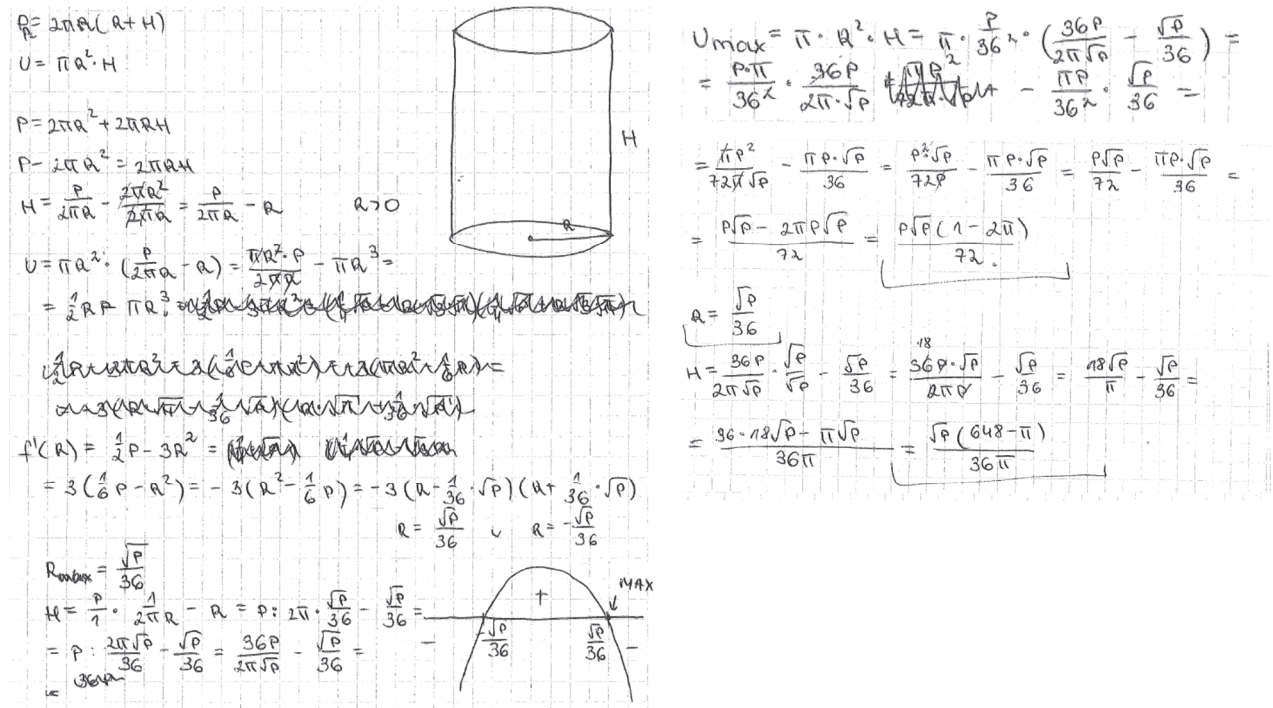 P = 2πR(R+H)
V = πR²·H
P = 2πR² + 2πRH
P - 2πR² = 2πRH
H = P/2πR - 2πR²/2πR = P/2πR - R R>0
V = πR²·(P/2πR - R) = πR²·P/2πR - πR³ =
= 1/2 RP - πR³
f'(R) = 1/2 P - 3R² =
= 3(1/6 P - R²) = -3(R² - 1/6 P) = -3(R - 1/36·√P)(R + 1/36·√P)
R = √P/36 ∪ R = -√P/36
Rmax = √P/36
H = P/1 · 1/2πR - R = P : 2π·√P/36 - √P/36 =
= P : 2π√P/36 - √P/36 = 36P/2π√P - √P/36 =
=
H
R
MAX
+
- -
-√P/36 √P/36
Vmax = π·R²·H = π·P/36²·(36P/2π√P - √P/36) =
= P·π/36² · 36P/2π·√P - πP/36² · √P/36 =
= πP²/72π√P - πP·√P/36 = P²·√P/72P - πP·√P/36 = P√P/72 - πP·√P/36 =
= P√P - 2πP√P/72 = P√P(1-2π)/72
R = √P/36
H = 36P/2π√P · √P/√P - √P/36 = 18 36P·√P/2πP - √P/36 = 18√P/π - √P/36 =
= 36·18√P - π√P/36π = √P(648-π)/36π